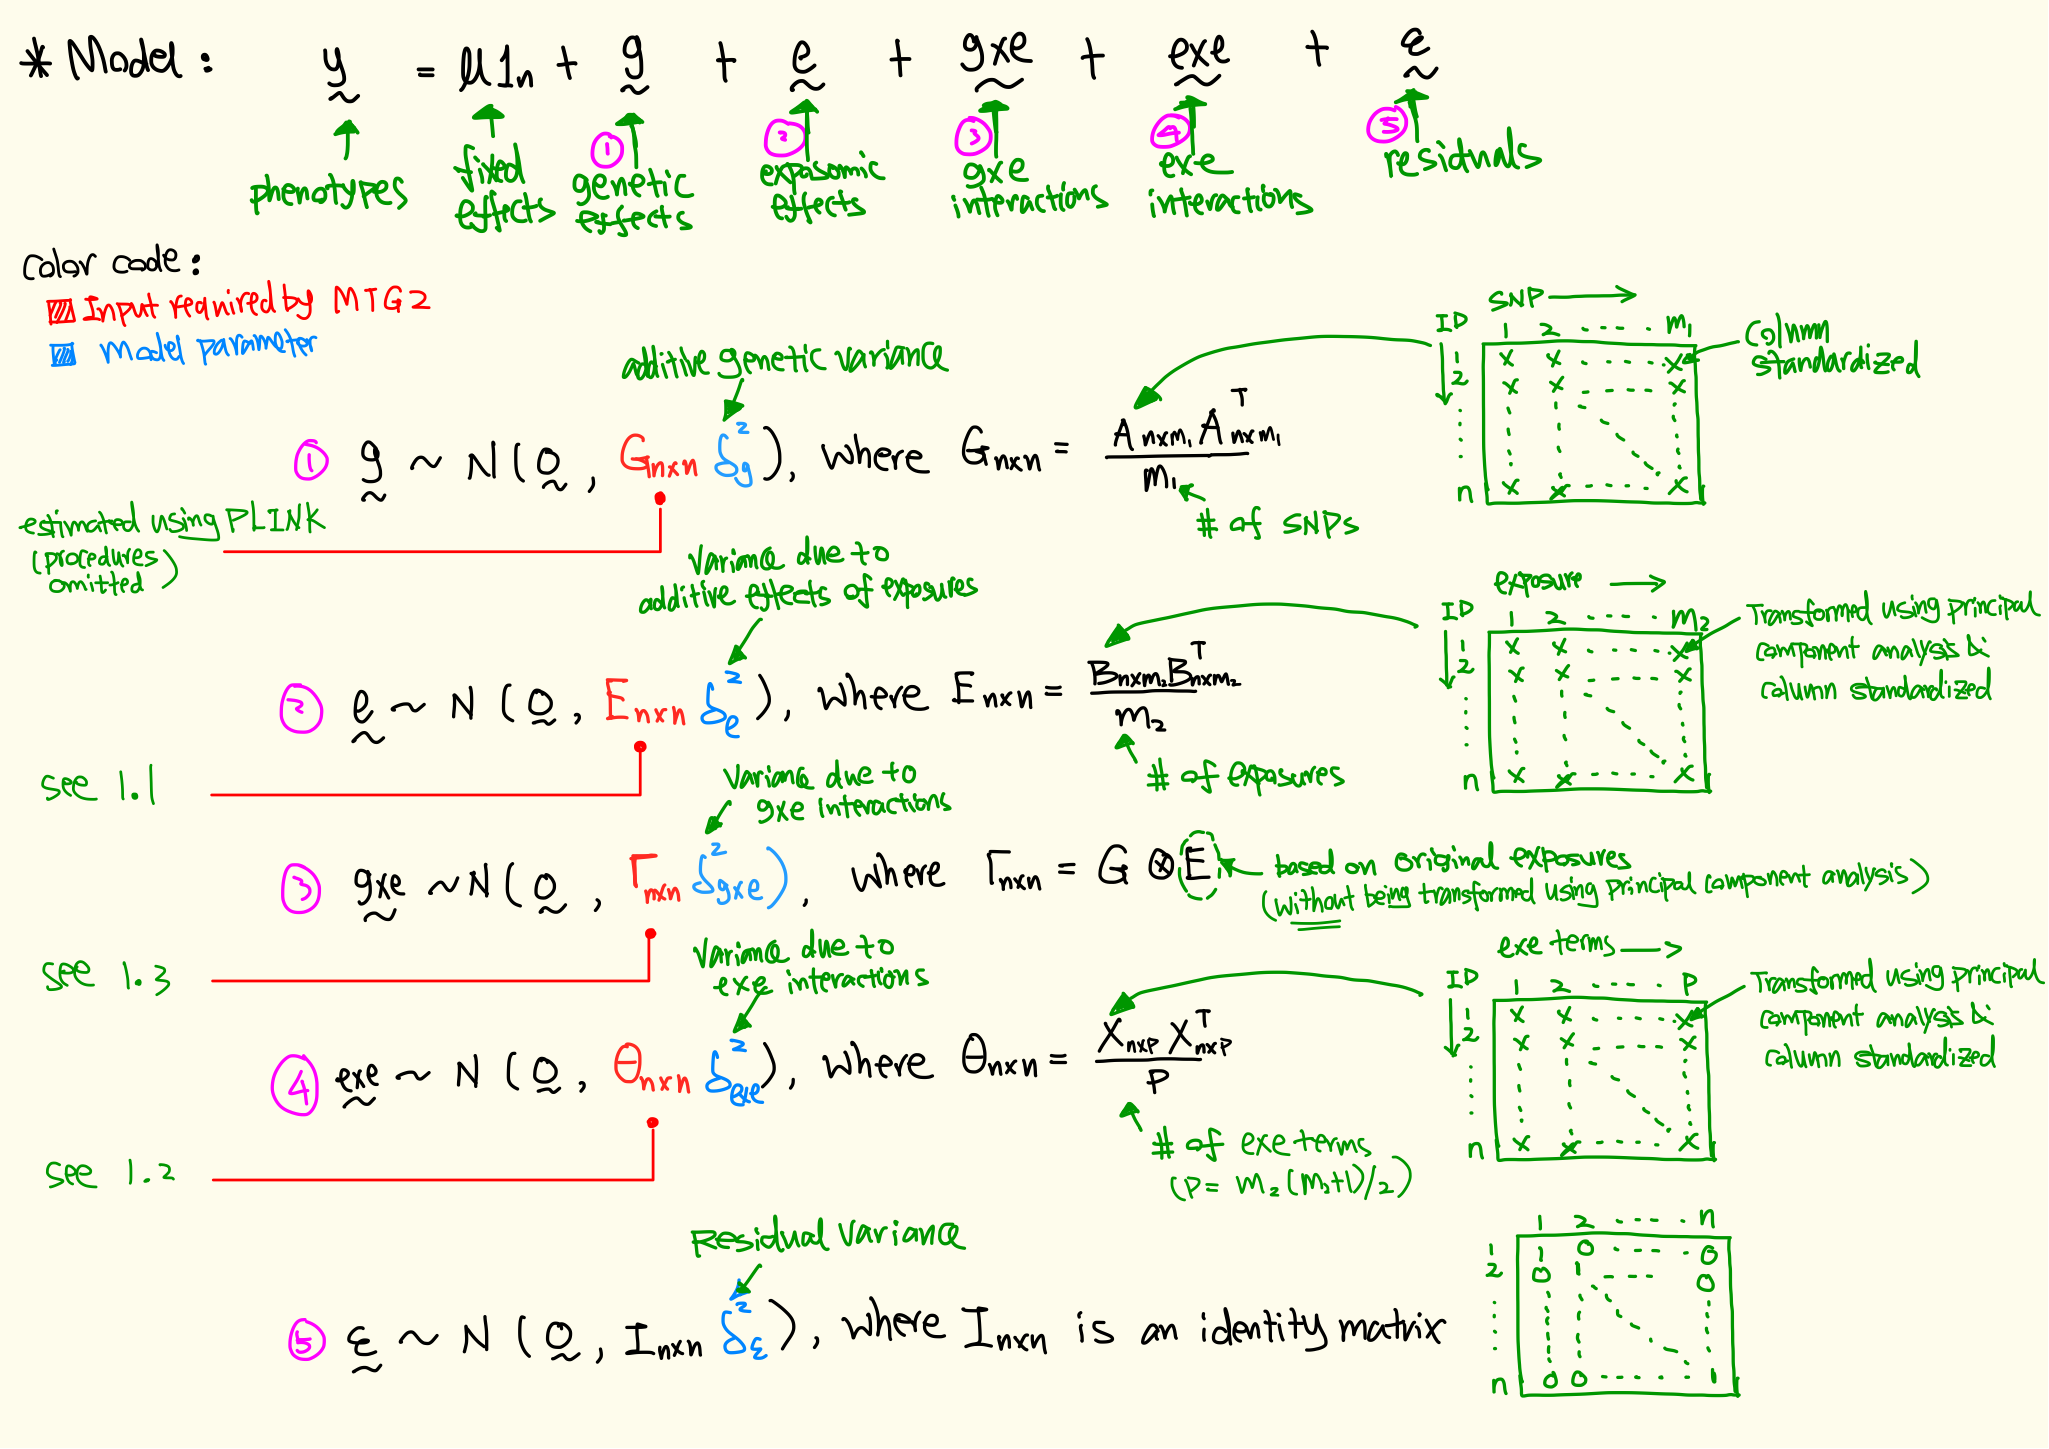 * Model : y = μ1n + g + e + gxe + exe + ε
① ② ③ ④ ⑤
phenotypes fixed effects genetic effects exposomic effects gxe interactions exe interactions residuals
Color code :
Input required by MTG2
Model parameter
additive genetic variance
① g ~ N ( 0 , Gnxn δg² ), where Gnxn = Anxm₁ Aᵀnxm₁ / m₁
# of SNPs
SNP →
ID 1 2 ····· m₁
1 x x ····· x
2 x x ····· x
n x x ····· x
Column standardized
estimated using PLINK
(procedures omitted)
Variance due to
additive effects of exposures
② e ~ N ( 0 , Enxn δe² ), where Enxn = Bnxm₂ Bᵀnxm₂ / m₂
# of exposures
exposure →
ID 1 2 ····· m₂
1 x x ····· x
2 x x ····· x
n x x ····· x
Transformed using principal
component analysis &
column standardized
see 1.1
Variance due to
gxe interactions
③ gxe ~ N ( 0 , Γnxn δgxe² ), where Γnxn = G ⊗ E
based on original exposures
(without being transformed using principal component analysis)
see 1.3
Variance due to
exe interactions
④ exe ~ N ( 0 , θnxn δexe² ), where θnxn = Xnxp Xᵀnxp / P
# of exe terms
(P = m₂(m₂+1)/2)
exe terms →
ID 1 2 ····· P
1 x x ····· x
2 x x ····· x
n x x ····· x
Transformed using principal
component analysis &
column standardized
see 1.2
Residual Variance
⑤ ε ~ N ( 0 , Inxn δε² ), where Inxn is an identity matrix
1 2 ····· n
1 1 0 ····· 0
2 0 1 ···· 0
n 0 0 ····· 1